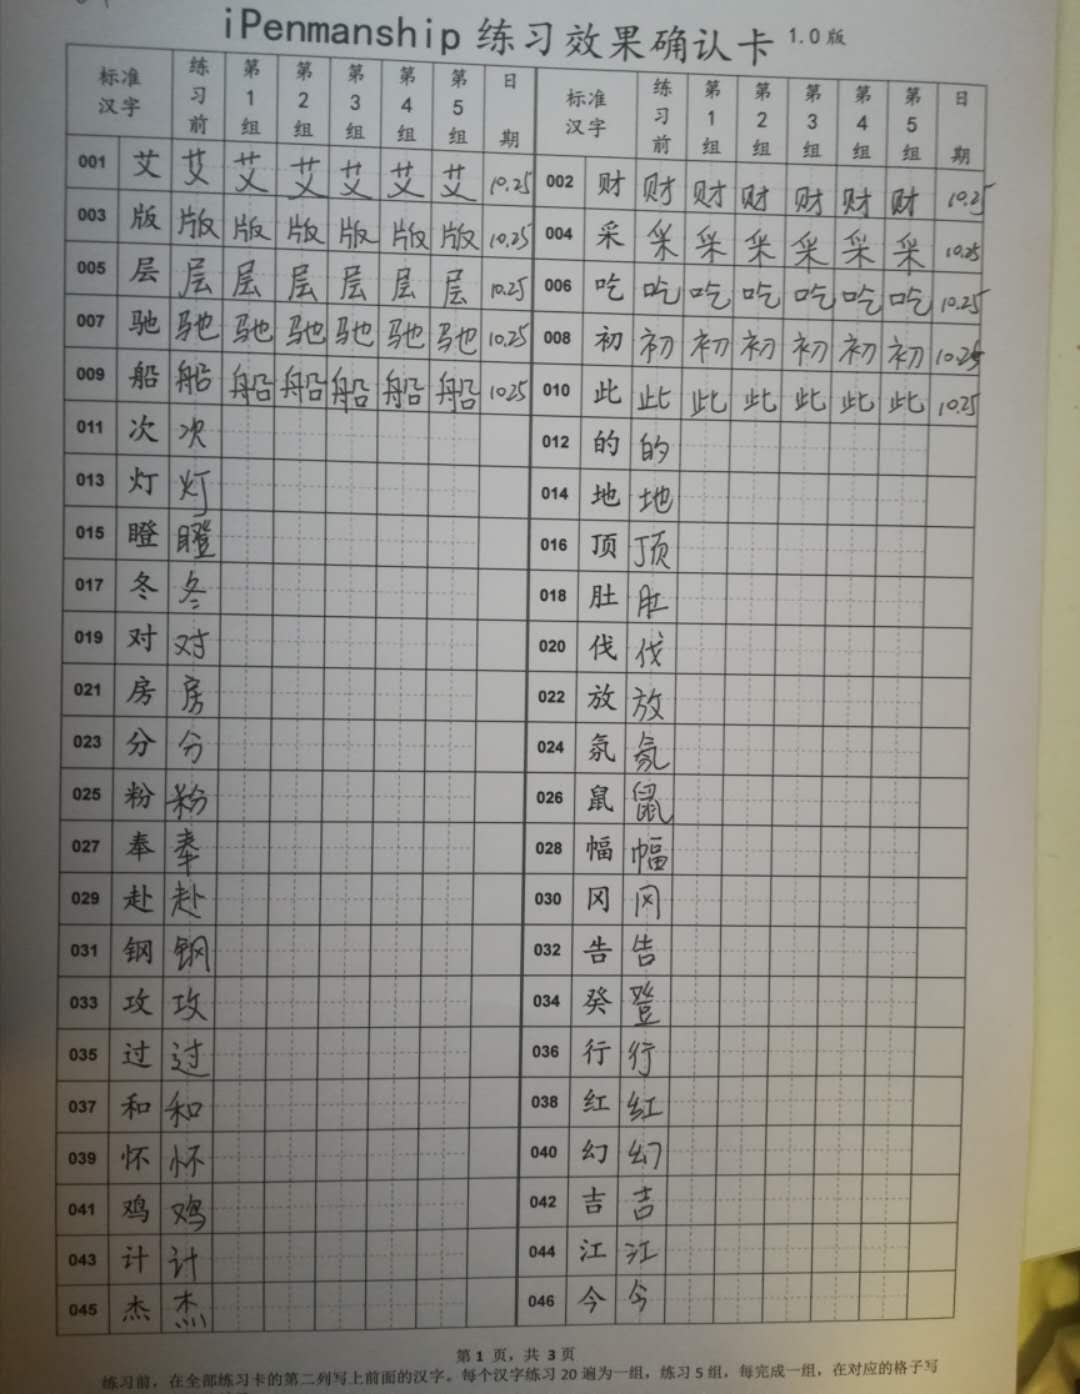 iPenmanship 练习效果确认卡 1.0版
标准汉字 练习前 第1组 第2组 第3组 第4组 第5组 日期 标准汉字 练习前 第1组 第2组 第3组 第4组 第5组 日期
001 艾 艾 艾 艾 艾 艾 艾 10.25 002 财 财 财 财 财 财 财 10.25
003 版 版 版 版 版 版 版 10.25 004 采 采 采 采 采 采 采 10.25
005 层 层 层 层 层 层 层 10.25 006 吃 吃 吃 吃 吃 吃 吃 10.25
007 驰 驰 驰 驰 驰 驰 驰 10.25 008 初 初 初 初 初 初 初 10.25
009 船 船 船 船 船 船 船 10.25 010 此 此 此 此 此 此 此 10.25
011 次 次 012 的 的
013 灯 灯 014 地 地
015 瞪 瞪 016 顶 顶
017 冬 冬 018 肚 肚
019 对 对 020 伐 伐
021 房 房 022 放 放
023 分 分 024 氛 氛
025 粉 粉 026 鼠 鼠
027 奉 奉 028 幅 幅
029 赴 赴 030 冈 冈
031 钢 钢 032 告 告
033 攻 攻 034 癸 登
035 过 过 036 行 行
037 和 和 038 红 红
039 怀 怀 040 幻 幻
041 鸡 鸡 042 吉 吉
043 计 计 044 江 江
045 杰 杰 046 今 今
第 1 页，共 3 页
练习前，在全部练习卡的第二列写上前面的汉字。每个汉字练习 20 遍为一组，练习 5 组，每完成一组，在对应的格子写